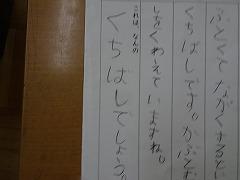 ふとくて ながくするどい
くちばしです。かぶとむ
しをくわえていますね。
これは、なんの
くちばしでしょう。